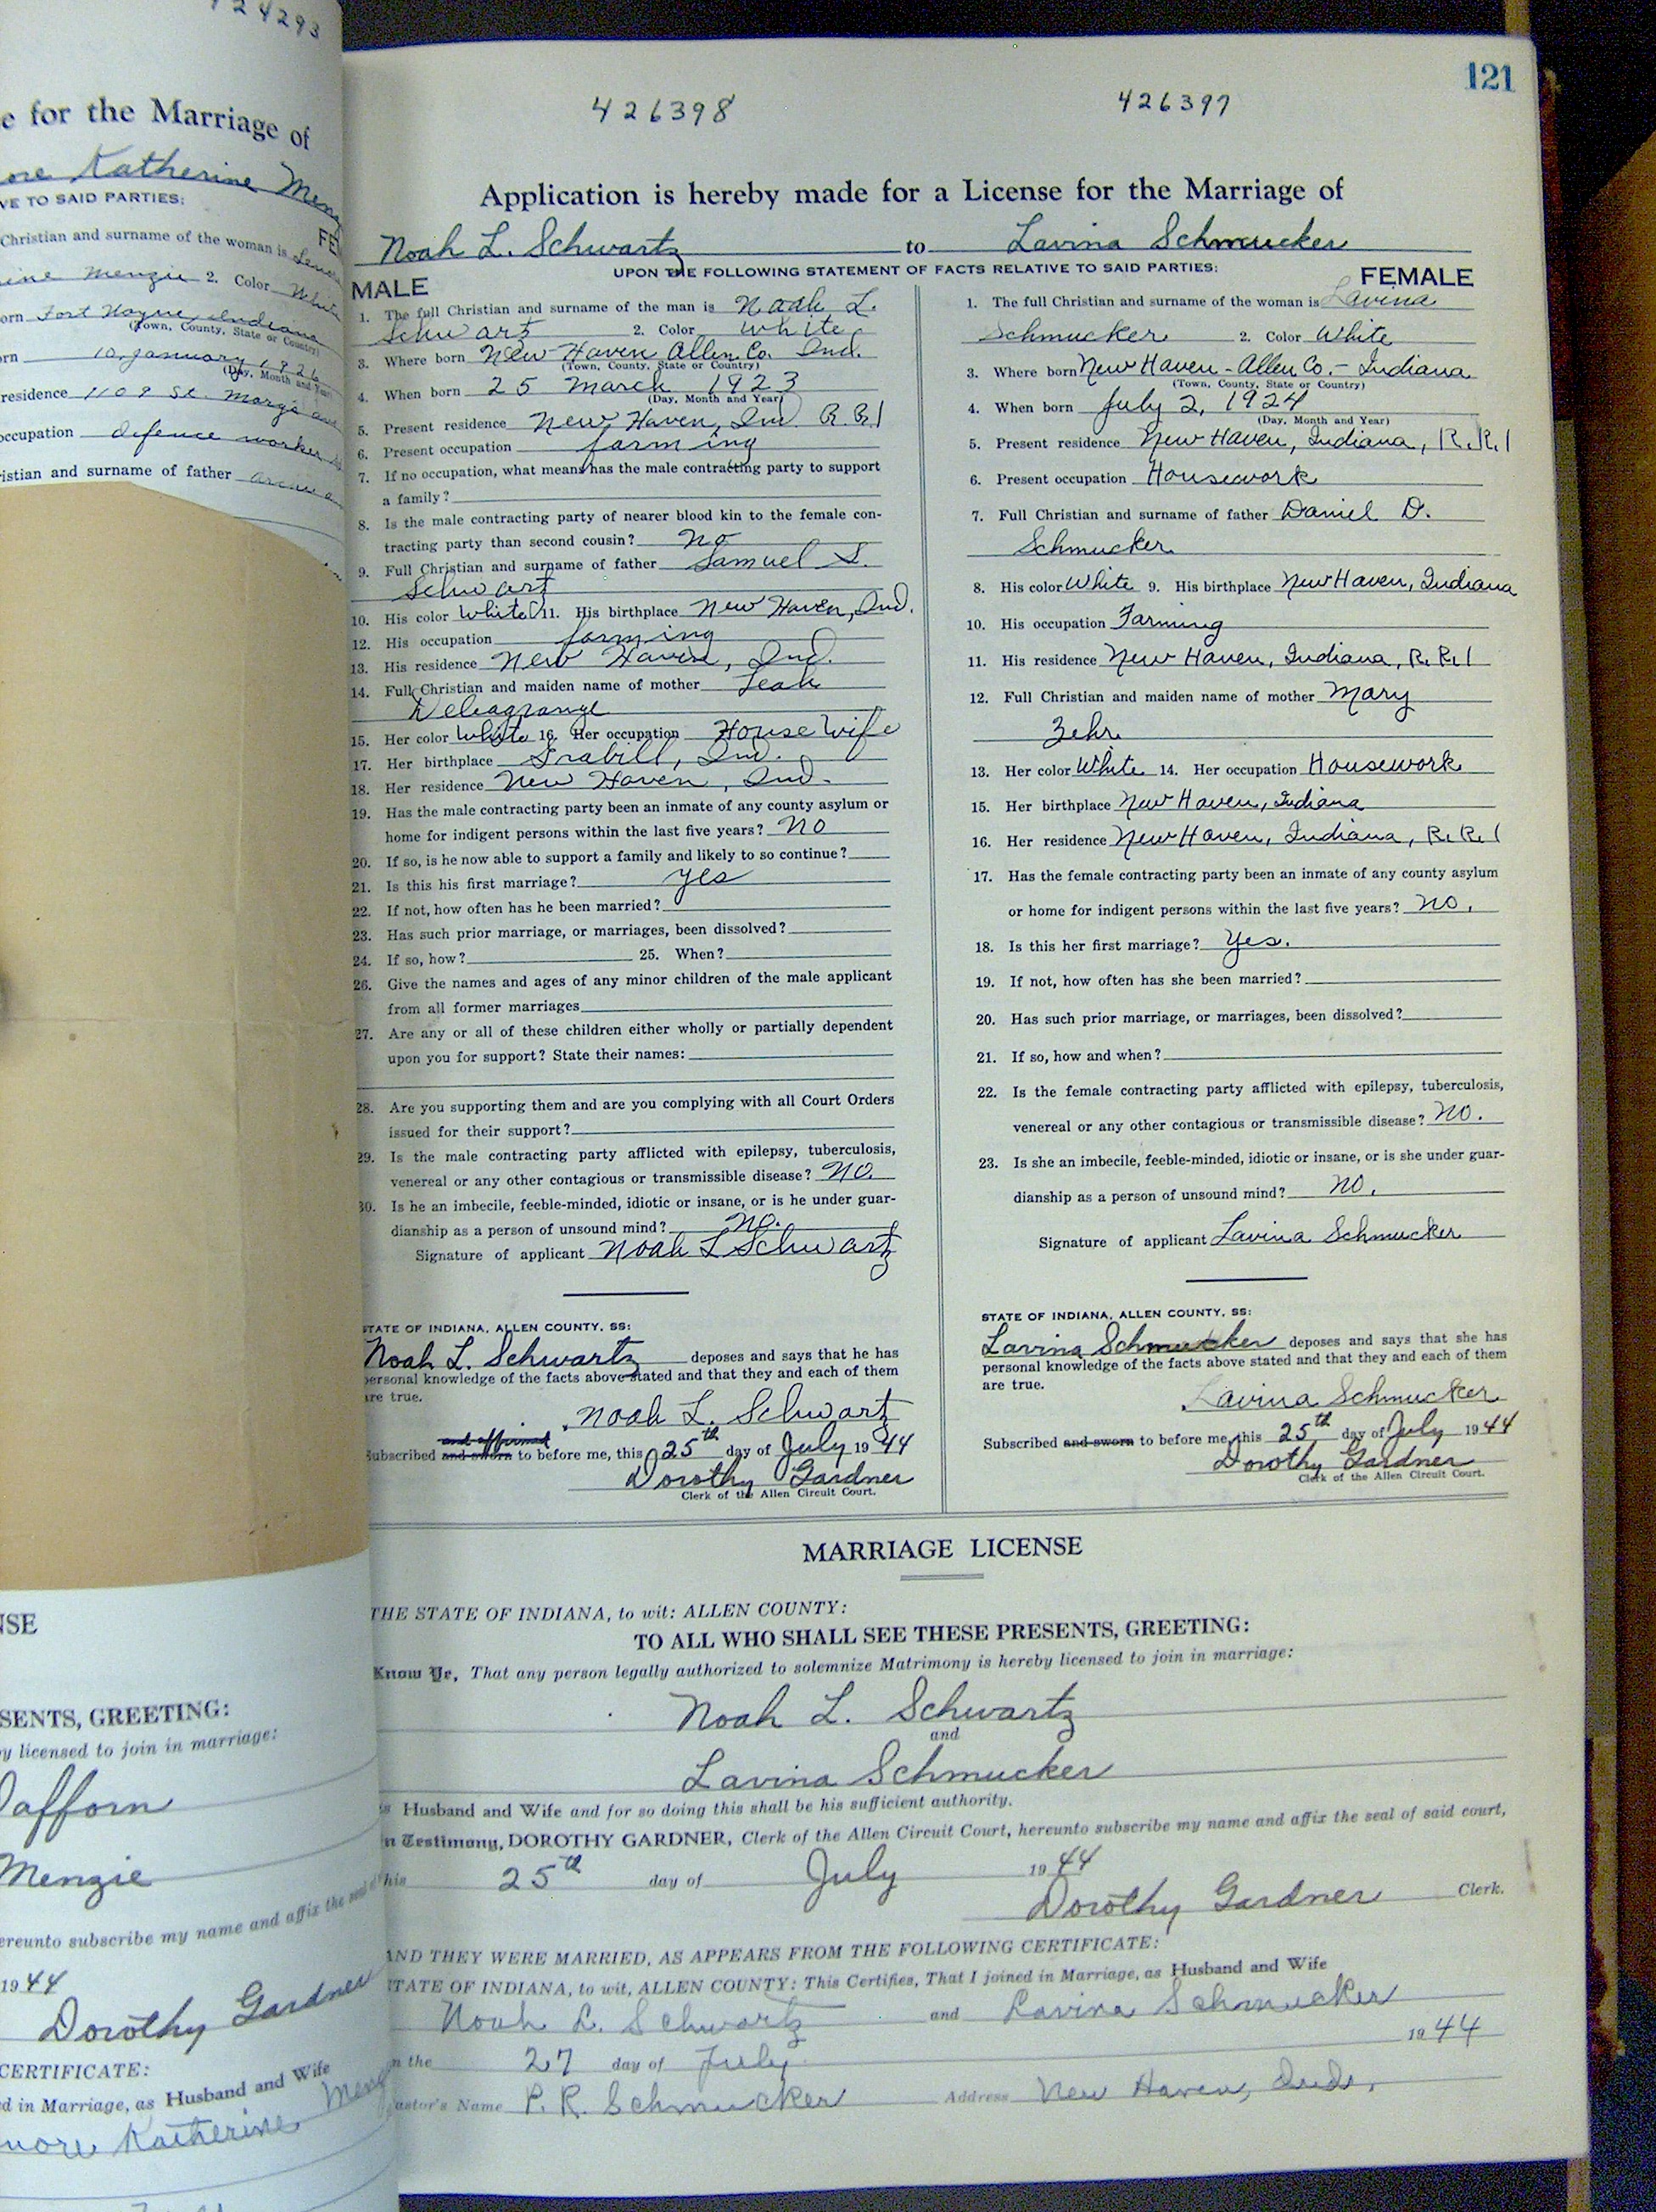 24293
e for the Marriage of
ore Katherine Men
VE TO SAID PARTIES:
FE
Christian and surname of the woman is
ine Menzie 2. Color Whit
orn Fort Wayne, Indiana
(Town, County, State or Country)
rn 10, January 1926
(Day, Month and Year
residence 1109 St. Mary's ave
occupation defence worker
istian and surname of father
NSE
SENTS, GREETING:
y licensed to join in marriage:
Dafforn
Menzie
ereunto subscribe my name and affix the seal of
1944
Dorothy Gardner
CERTIFICATE:
d in Marriage, as Husband and Wife
nore Katherine Menz
121
426398 426397
Application is hereby made for a License for the Marriage of
Noah L. Schwartz to Lavina Schmucker
UPON THE FOLLOWING STATEMENT OF FACTS RELATIVE TO SAID PARTIES:
MALE
1. The full Christian and surname of the man is Noah L.
Schwartz 2. Color White
3. Where born New Haven Allen Co. Ind.
(Town, County, State or Country)
4. When born 25 March 1923
(Day, Month and Year)
5. Present residence New Haven, Ind. R.R.1
6. Present occupation farming
7. If no occupation, what means has the male contracting party to support
a family?
8. Is the male contracting party of nearer blood kin to the female con-
tracting party than second cousin? No
9. Full Christian and surname of father Samuel S.
Schwartz
10. His color White 11. His birthplace New Haven, Ind.
12. His occupation farming
13. His residence New Haven, Ind.
14. Full Christian and maiden name of mother Leah
Delagrange
15. Her color White 16. Her occupation House Wife
17. Her birthplace Grabill, Ind.
18. Her residence New Haven, Ind.
19. Has the male contracting party been an inmate of any county asylum or
home for indigent persons within the last five years? No
20. If so, is he now able to support a family and likely to so continue?
21. Is this his first marriage? yes
22. If not, how often has he been married?
23. Has such prior marriage, or marriages, been dissolved?
24. If so, how? 25. When?
26. Give the names and ages of any minor children of the male applicant
from all former marriages
27. Are any or all of these children either wholly or partially dependent
upon you for support? State their names:
28. Are you supporting them and are you complying with all Court Orders
issued for their support?
29. Is the male contracting party afflicted with epilepsy, tuberculosis,
venereal or any other contagious or transmissible disease? No.
30. Is he an imbecile, feeble-minded, idiotic or insane, or is he under guar-
dianship as a person of unsound mind? No.
Signature of applicant Noah L Schwartz
STATE OF INDIANA, ALLEN COUNTY, SS:
Noah L. Schwartz deposes and says that he has
personal knowledge of the facts above stated and that they and each of them
are true.
Noah L. Schwartz
and affirmed
Subscribed and sworn to before me, this 25th day of July 1944
Dorothy Gardner
Clerk of the Allen Circuit Court.
FEMALE
1. The full Christian and surname of the woman is Lavina
Schmucker 2. Color White
3. Where born New Haven - Allen Co. - Indiana
(Town, County, State or Country)
4. When born July 2, 1924
(Day, Month and Year)
5. Present residence New Haven, Indiana, R.R.1
6. Present occupation Housework
7. Full Christian and surname of father Daniel D.
Schmucker
8. His color White 9. His birthplace New Haven, Indiana
10. His occupation Farming
11. His residence New Haven, Indiana, R.R.1
12. Full Christian and maiden name of mother Mary
Zehr
13. Her color White 14. Her occupation Housework
15. Her birthplace New Haven, Indiana
16. Her residence New Haven, Indiana, R.R.1
17. Has the female contracting party been an inmate of any county asylum
or home for indigent persons within the last five years? No.
18. Is this her first marriage? Yes.
19. If not, how often has she been married?
20. Has such prior marriage, or marriages, been dissolved?
21. If so, how and when?
22. Is the female contracting party afflicted with epilepsy, tuberculosis,
venereal or any other contagious or transmissible disease? No.
23. Is she an imbecile, feeble-minded, idiotic or insane, or is she under guar-
dianship as a person of unsound mind? No.
Signature of applicant Lavina Schmucker
STATE OF INDIANA, ALLEN COUNTY, SS:
Lavina Schmucker deposes and says that she has
personal knowledge of the facts above stated and that they and each of them
are true.
Lavina Schmucker
Subscribed and sworn to before me, this 25th day of July 1944
Dorothy Gardner
Clerk of the Allen Circuit Court.
MARRIAGE LICENSE
THE STATE OF INDIANA, to wit: ALLEN COUNTY:
TO ALL WHO SHALL SEE THESE PRESENTS, GREETING:
Know Ye, That any person legally authorized to solemnize Matrimony is hereby licensed to join in marriage:
Noah L. Schwartz
and
Lavina Schmucker
as Husband and Wife and for so doing this shall be his sufficient authority.
In Testimony, DOROTHY GARDNER, Clerk of the Allen Circuit Court, hereunto subscribe my name and affix the seal of said court,
this 25th day of July 1944
Dorothy Gardner Clerk.
AND THEY WERE MARRIED, AS APPEARS FROM THE FOLLOWING CERTIFICATE:
STATE OF INDIANA, to wit, ALLEN COUNTY: This Certifies, That I joined in Marriage, as Husband and Wife
Noah L. Schwartz and Lavina Schmucker
on the 27 day of July 1944
Pastor's Name P. R. Schmucker Address New Haven, Ind.